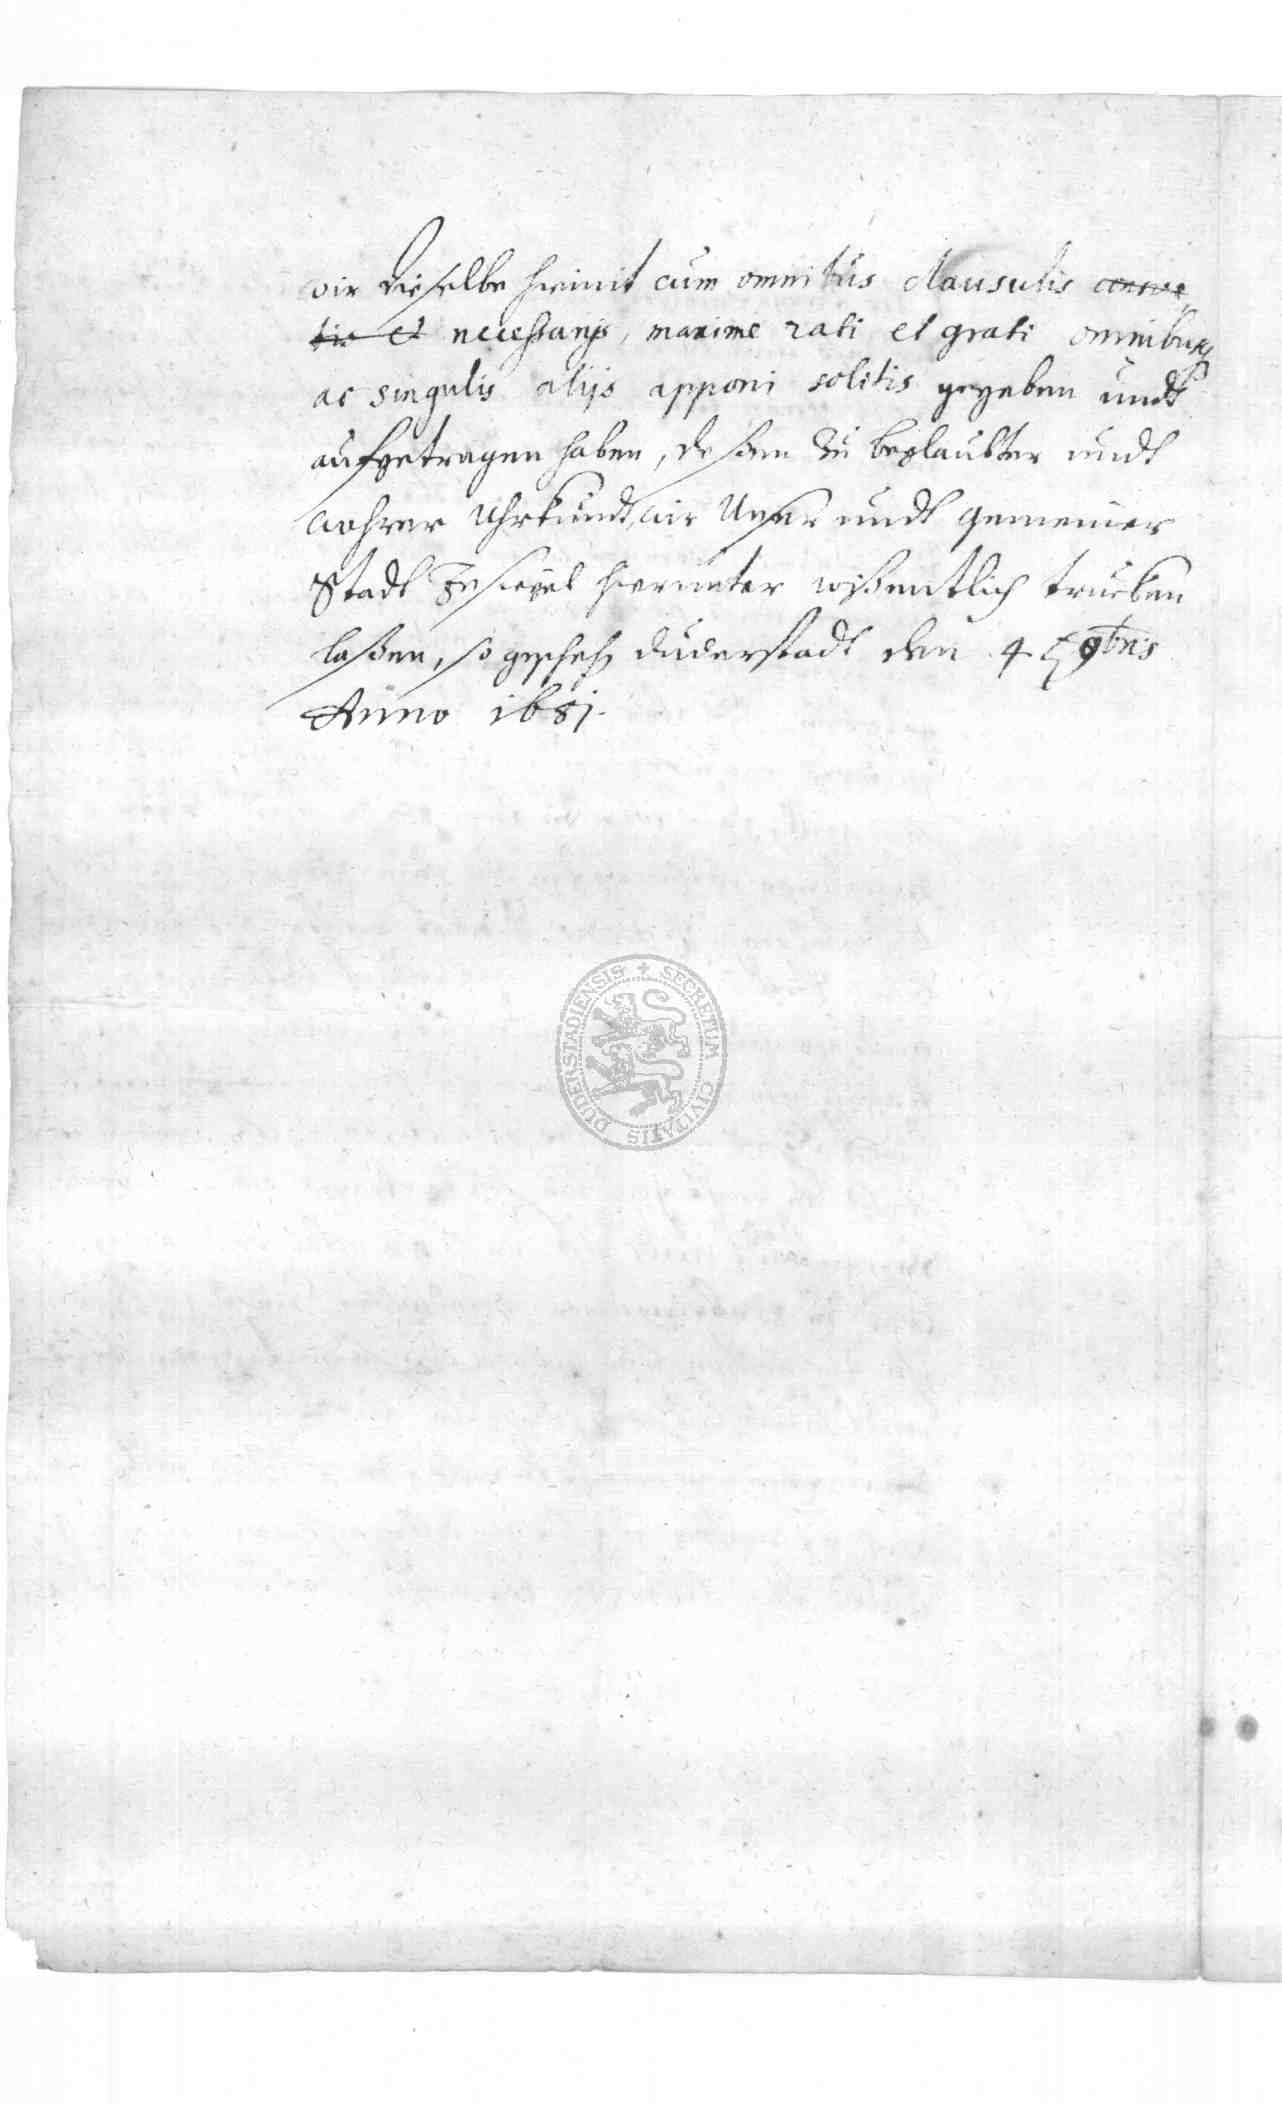 wir dieselbe hiemit cum omnibus clausulis consue
tis et necessarijs, maxime rati et grati omnibusq
ac singulis alijs apponi solitis gegeben undt
aufgetragen haben, deßen zu beglaubter undt
wahrer Uhrkundt, wir Unser undt gemeiner
Stadt Insiegel hierunter wißentlich trucken
laßen, so geschehen Duderstadt den 4 9bris
Anno 1681.
SECRETUM CIVITATIS DUDERSTADIENSIS